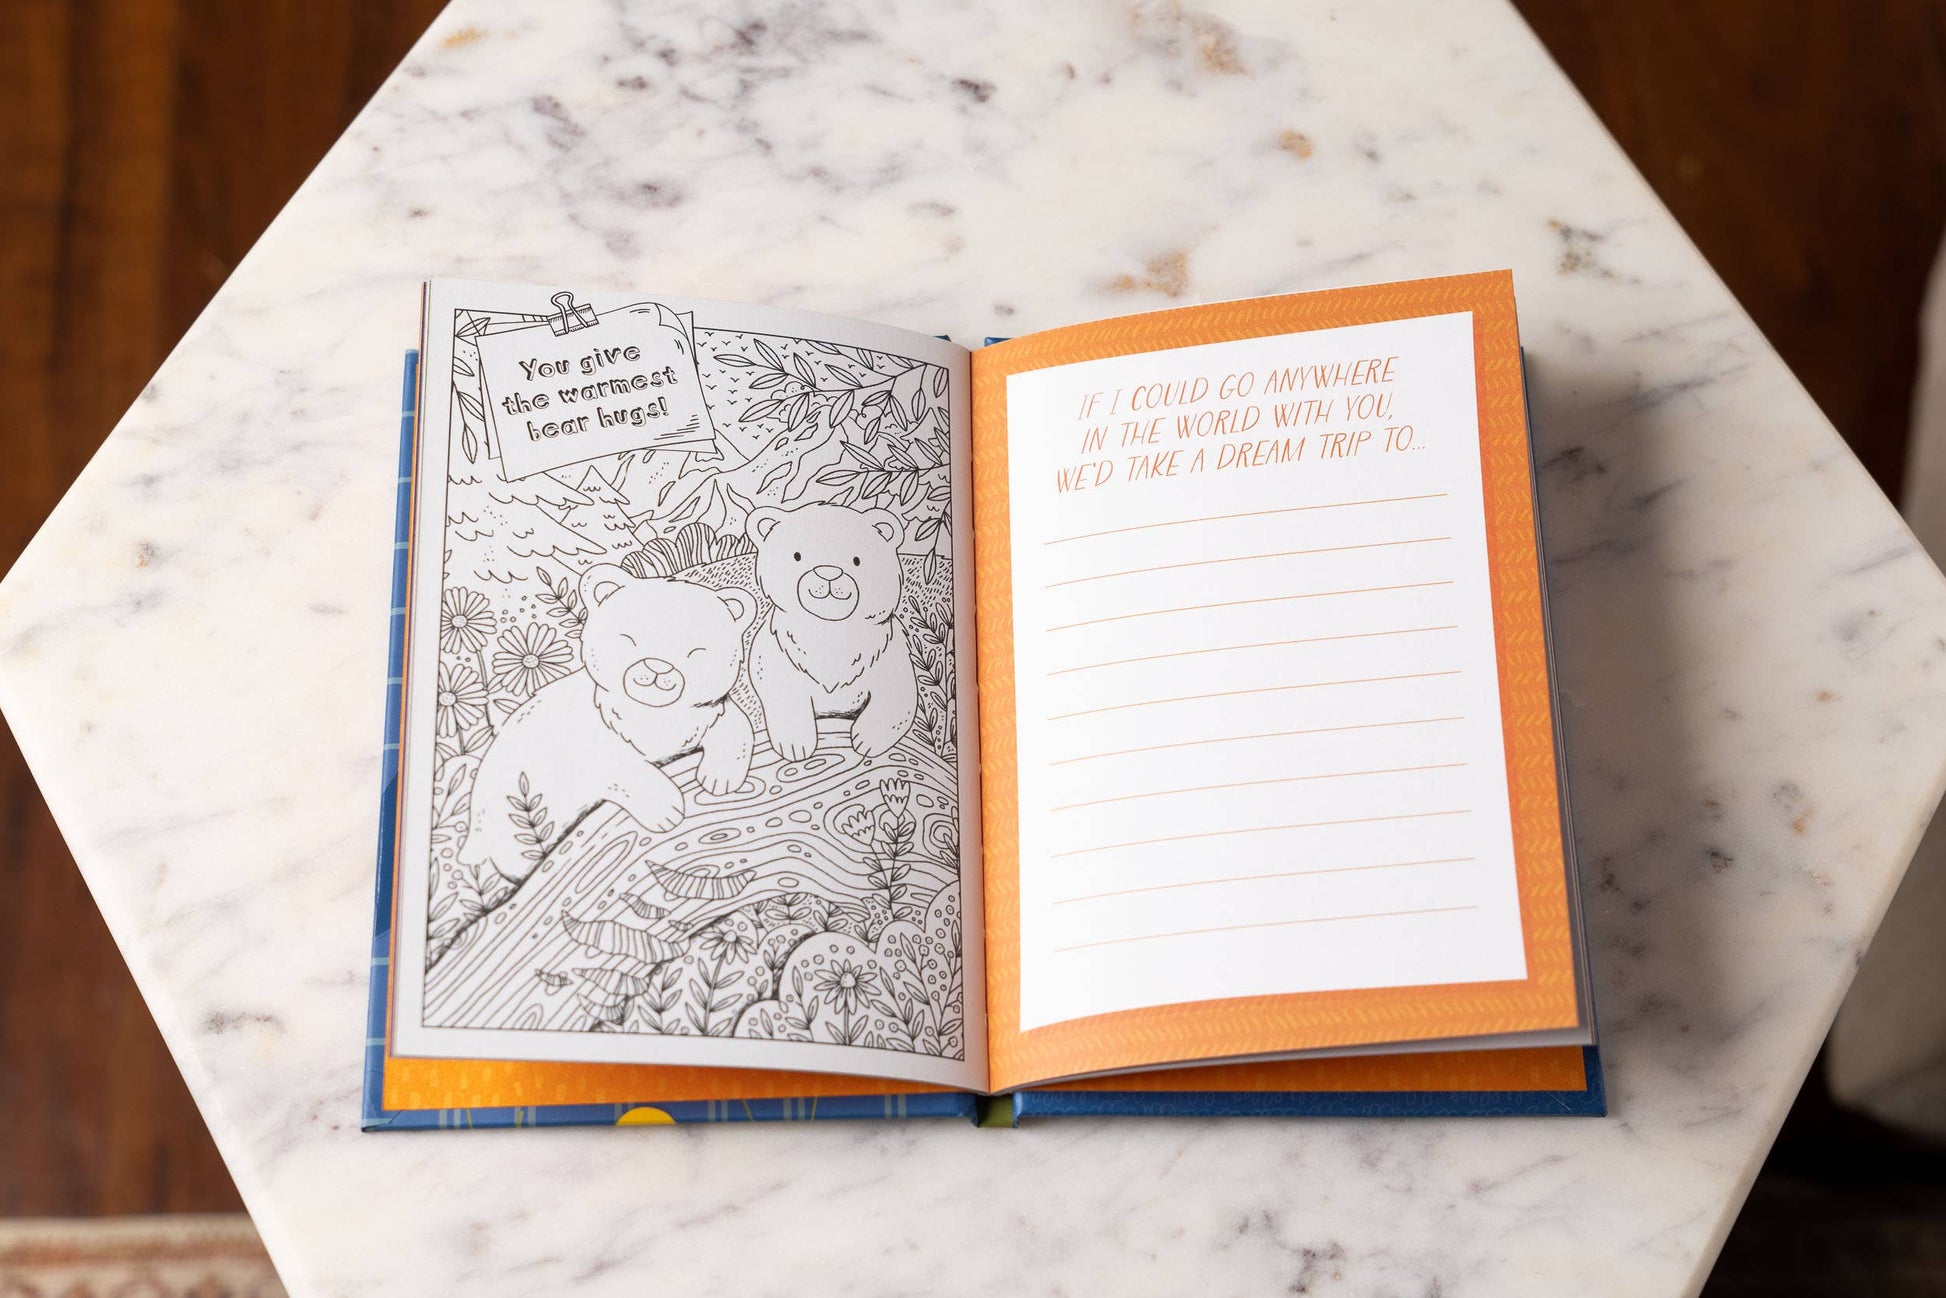 You give
the warmest
bear hugs!
IF I COULD GO ANYWHERE
IN THE WORLD WITH YOU,
WE'D TAKE A DREAM TRIP TO...